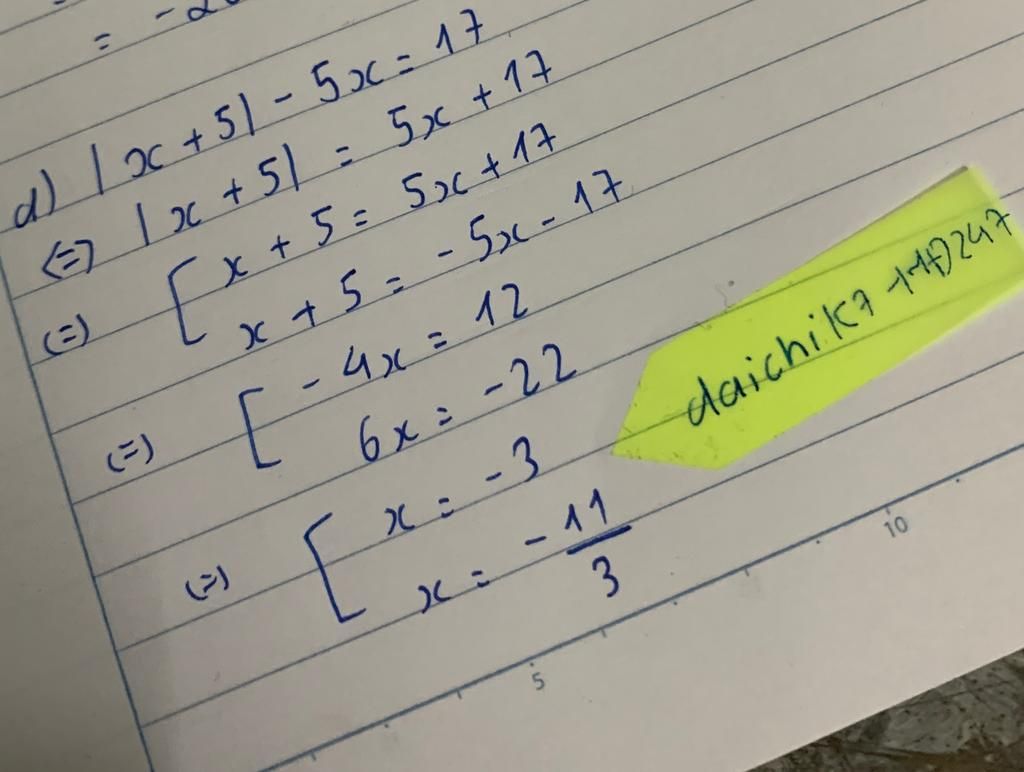 = -2
d) |x + 5| - 5x = 17
(=) |x + 5| = 5x + 17
(=) [ x + 5 = 5x + 17
x + 5 = - 5x - 17
(=) [ - 4x = 12
6x = -22
(=) [ x = -3
x = - 11/3
daichik7
5
10